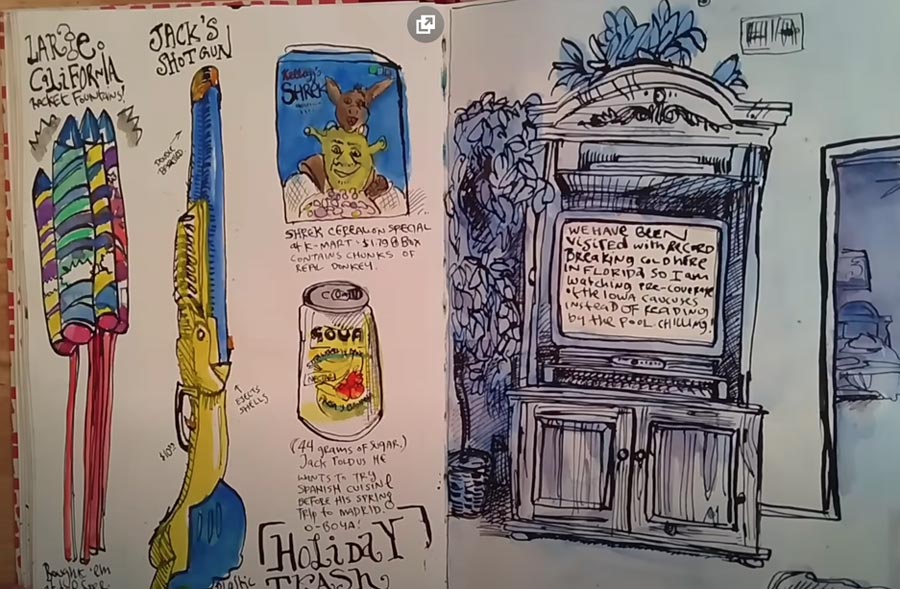 LARGE
CALIFORNIA
ROCKET FOUNTAINS!
JACK'S
SHOTGUN
DOUBLE
BARREL
EJECTS
SHELLS
Plastic
Bought 'em
Kellogg's
SHREK
SHREK CEREAL ON SPECIAL
at K-MART - $1.79 a BOX
CONTAINS CHUNKS OF
REAL DONKEY.
GOYA
NECTAR
(44 grams of SUGAR.)
JACK TOLD US HE
WANTS TO TRY
SPANISH CUISINE
BEFORE HIS SPRING
TRIP to MADRID.
O-BOYA!
HOLIDAY
TRASH
WE HAVE BEEN
VISITED with RECORD
BREAKING COLD HERE
IN FLORIDA SO I am
watching PRE-COVERAGE
of the IOWA CAUCUSES
INSTEAD OF READING
by the POOL. CHILLING!